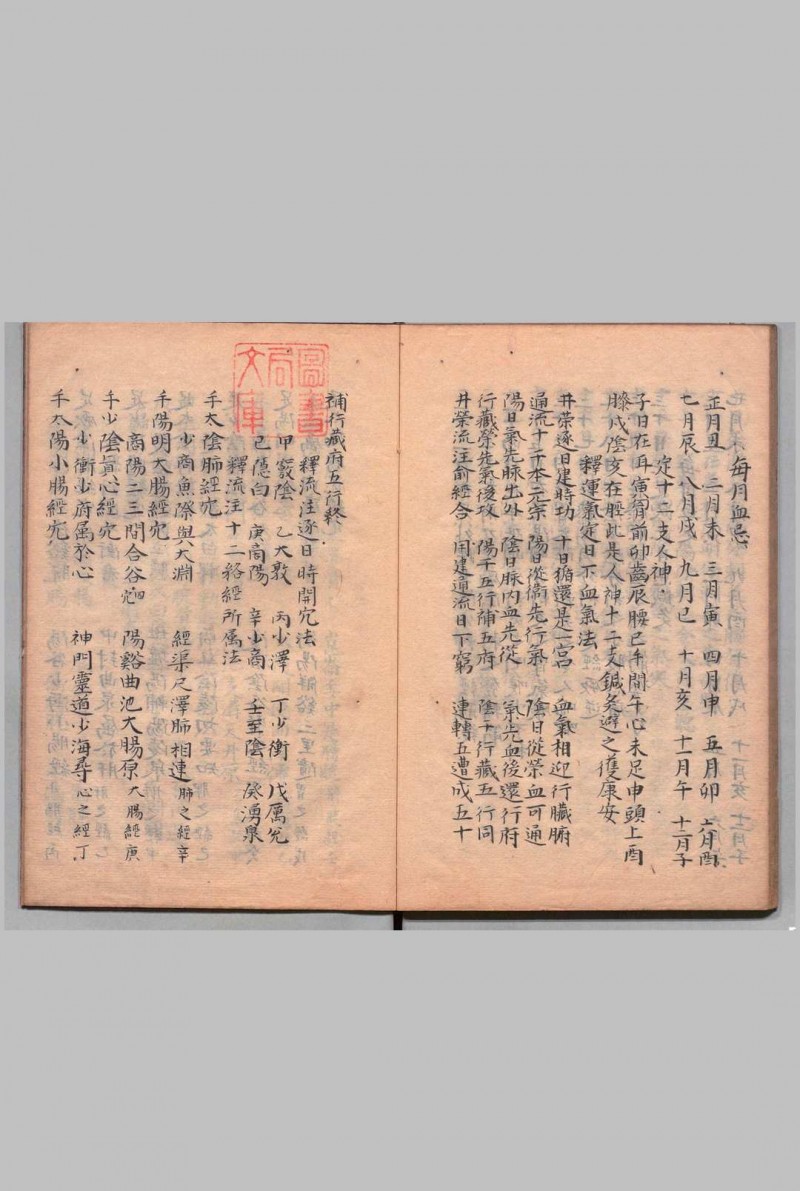 每月血忌
正月丑 二月未 三月寅 四月申 五月卯 六月酉
七月辰 八月戌 九月巳 十月亥 十一月午 十二月子
定十二支人神
子日在耳寅胷前卯齒辰腰巳手間午心未足申頭上酉
膝戌陰亥在脛此是人神十二支鍼灸避之獲康安
釋運氣定日下血氣法
井荣逐日建時功 十日循還是一宮 血氣相迎行臟腑
通流十干本元宗 陽日從衛先行氣 陰日從榮血可通
陽日氣先脉出外 陰日脉内血先從 氣先血後還行府
行藏榮先氣後攻 陽干五行補五府 陰干行藏五行同
井榮流注俞經合 用建通流日下窮 連轉五遭成五十
補行藏府五行終
釋流注逐日時開穴法
甲竅陰 乙大敦 丙少澤 丁少衝 戊厲兊
己隱白 庚商陽 辛少商 壬至陰 癸湧泉
釋流注十二絡經所属法
手太陰肺經穴
少商魚際與大淵 經渠尺澤肺相連 肺之經辛
手陽明大腸經穴
商陽二三間合谷 陽谿曲池大腸原 大腸經庚
手少陰真心經穴
少衝少府属於心 神門靈道少海尋 心之經丁
手太陽小腸經穴
圖書
局
文庫